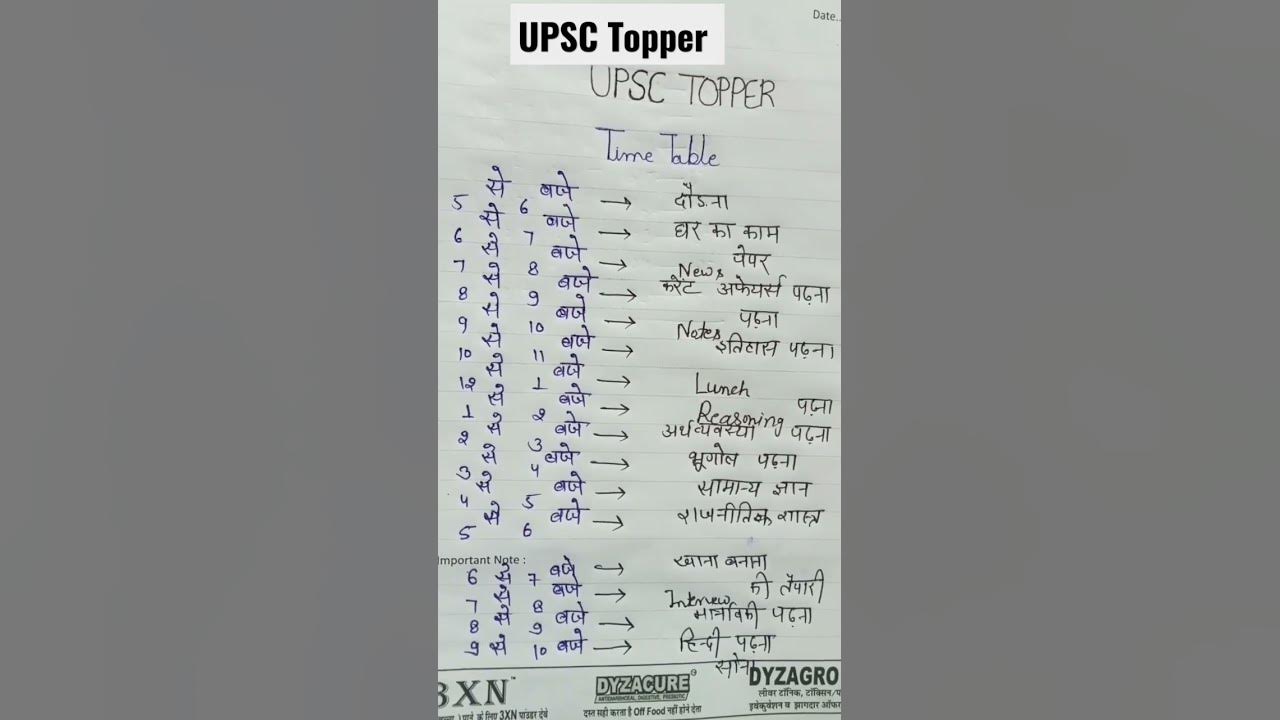 UPSC Topper
Date..
UPSC TOPPER
Time Table
5 से 6 बजे → दौडना
6 से 7 बजे → घर का काम
7 से 8 बजे → News पेपर
8 से 9 बजे → करेंट अफेयर्स पढ़ना
9 से 10 बजे → Notes पढ़ना
10 से 11 बजे → इतिहास पढ़ना
12 से 1 बजे → Lunch
1 से 2 बजे → Reasoning पढ़ना
2 से 3 बजे → अर्थव्यवस्था पढ़ना
3 से 4 बजे → भूगोल पढ़ना
4 से 5 बजे → सामान्य ज्ञान
5 से 6 बजे → राजनीतिक शास्त्र
Important Note :
6 से 7 बजे → खाना बनाना
7 से 8 बजे → Interview की तैयारी
8 से 9 बजे → पढ़ना
9 से 10 बजे → हिन्दी पढ़ना
सोना
3XN™ DYZACURE® DYZAGRO
ANTIDIARRHOEAL, DIGESTIVE, PREBIOTIC लीवर टॉनिक, टॉक्सिन/प
के लिए 3XN पाउडर देवे दस्त सही करता है Off Food नहीं होने देता इवेकुवेशन व झागदार ऑफर